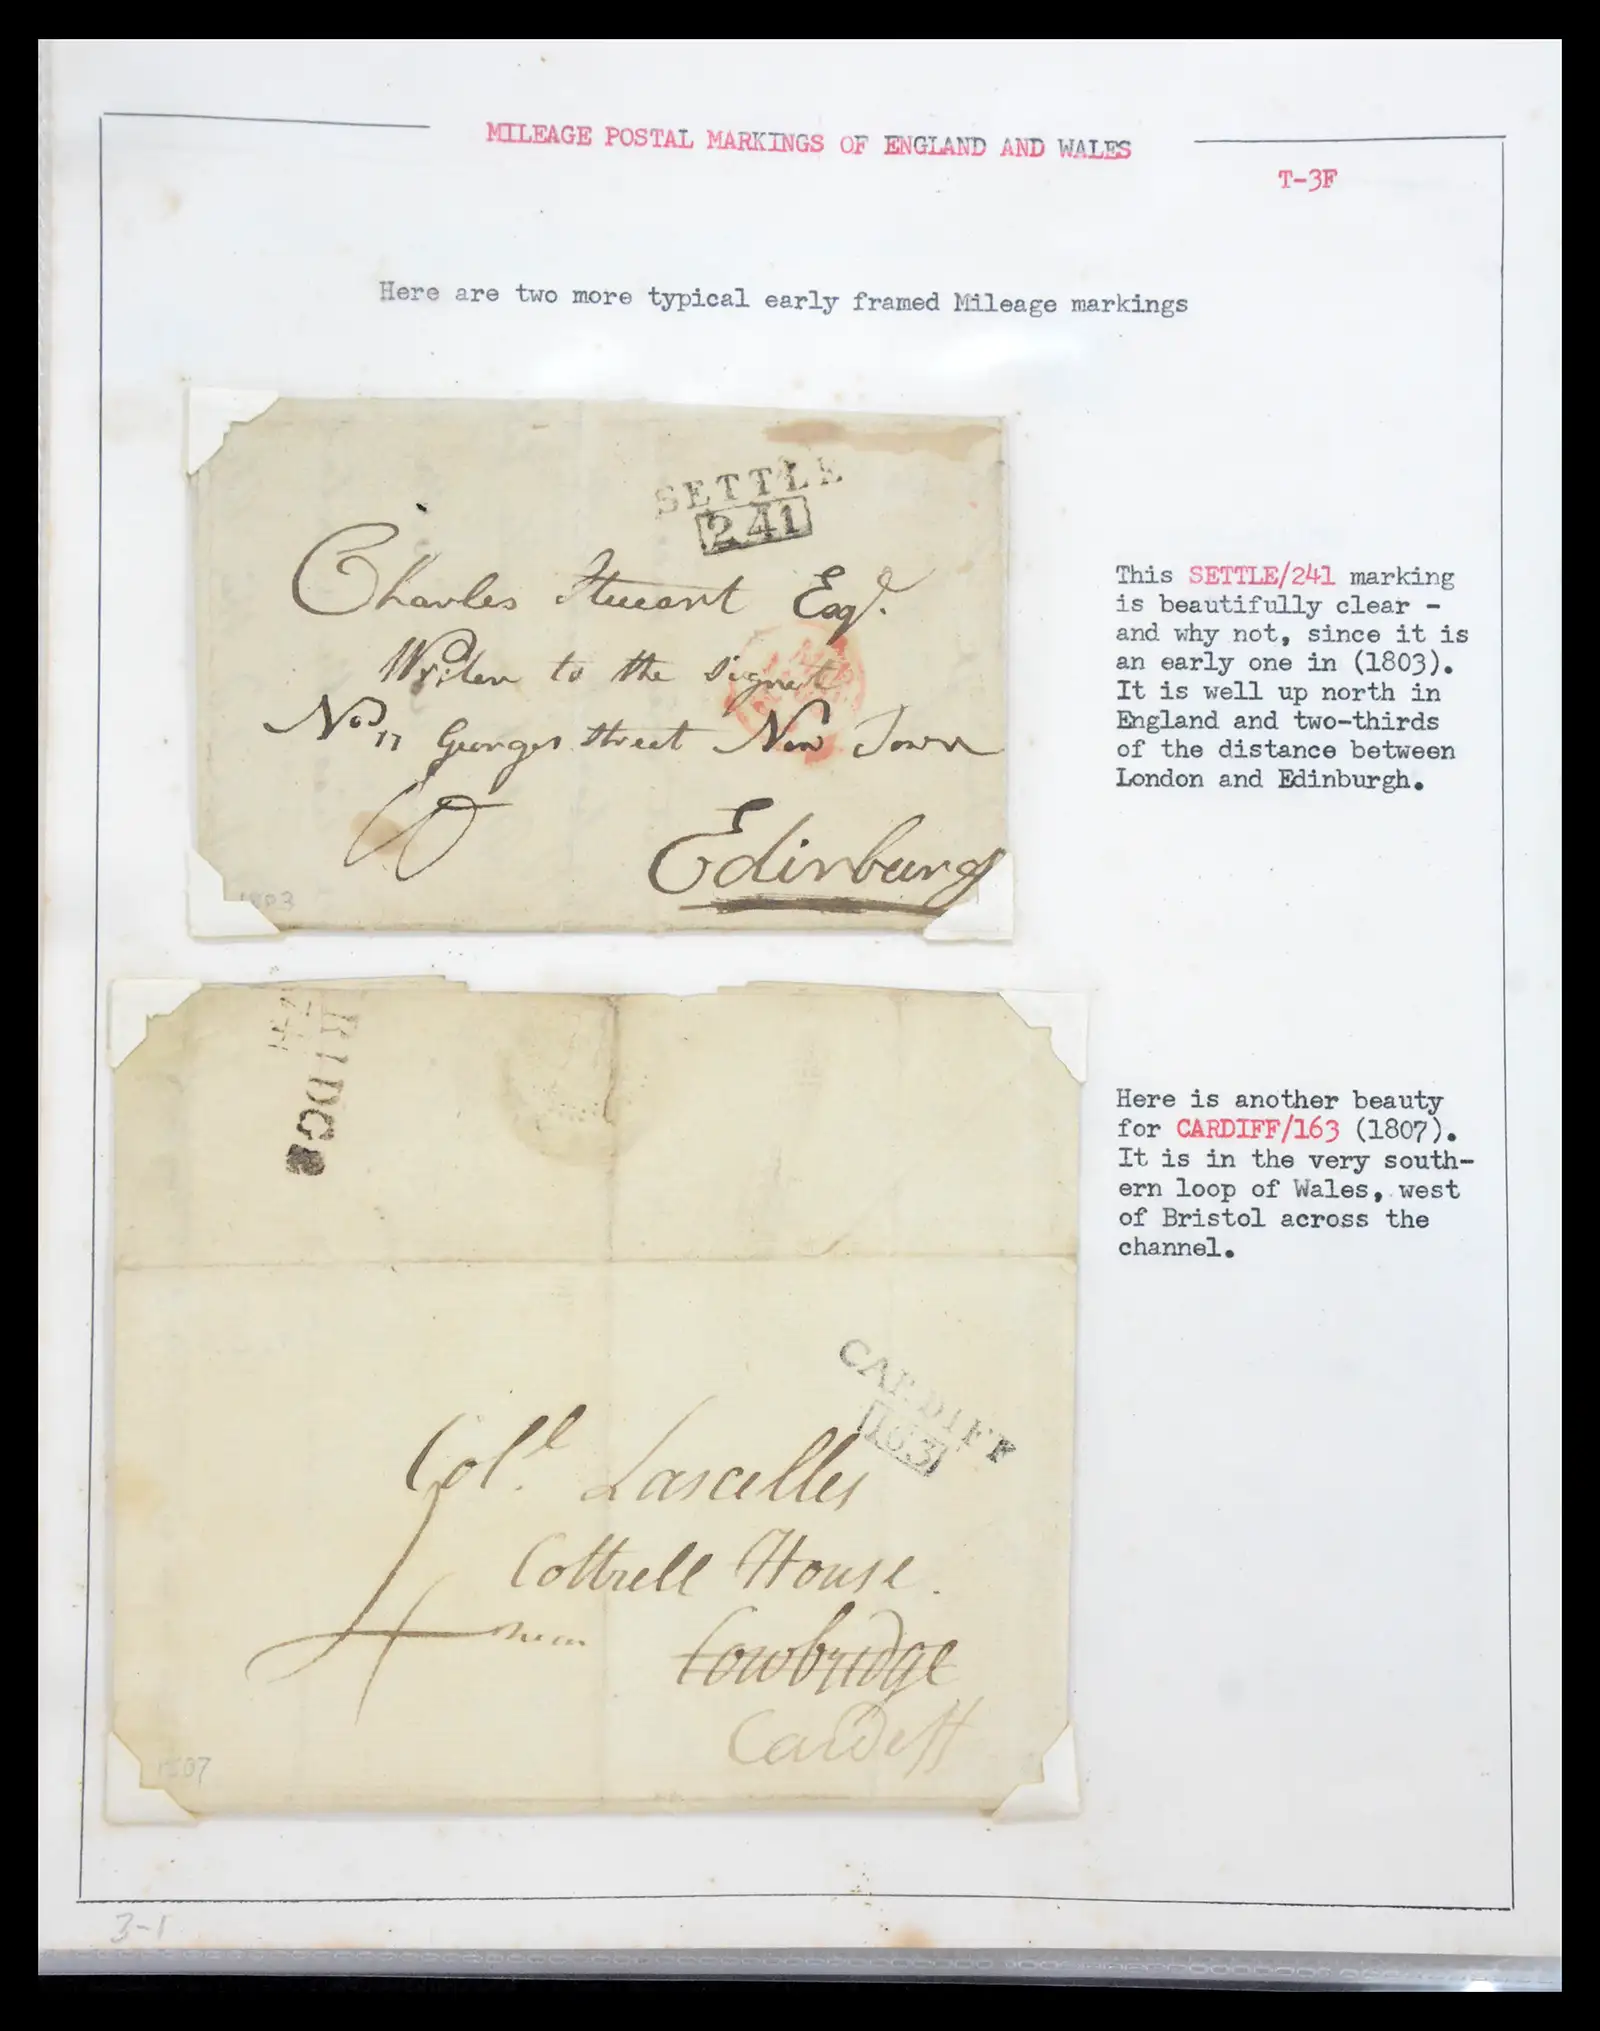 MILEAGE POSTAL MARKINGS OF ENGLAND AND WALES
T-3F
Here are two more typical early framed Mileage markings
SETTLE
241
Charles Steuart Esqr.
Writer to the Signet
No. 17 Georges Street New Town
Edinburg
1803
This SETTLE/241 marking
is beautifully clear -
and why not, since it is
an early one in (1803).
It is well up north in
England and two-thirds
of the distance between
London and Edinburgh.
RIDGE
CARDIFF
163
Coll. Lascelles
Cottrell House.
near Cowbridge
Cardiff
1807
Here is another beauty
for CARDIFF/163 (1807).
It is in the very south-
ern loop of Wales, west
of Bristol across the
channel.
3-1